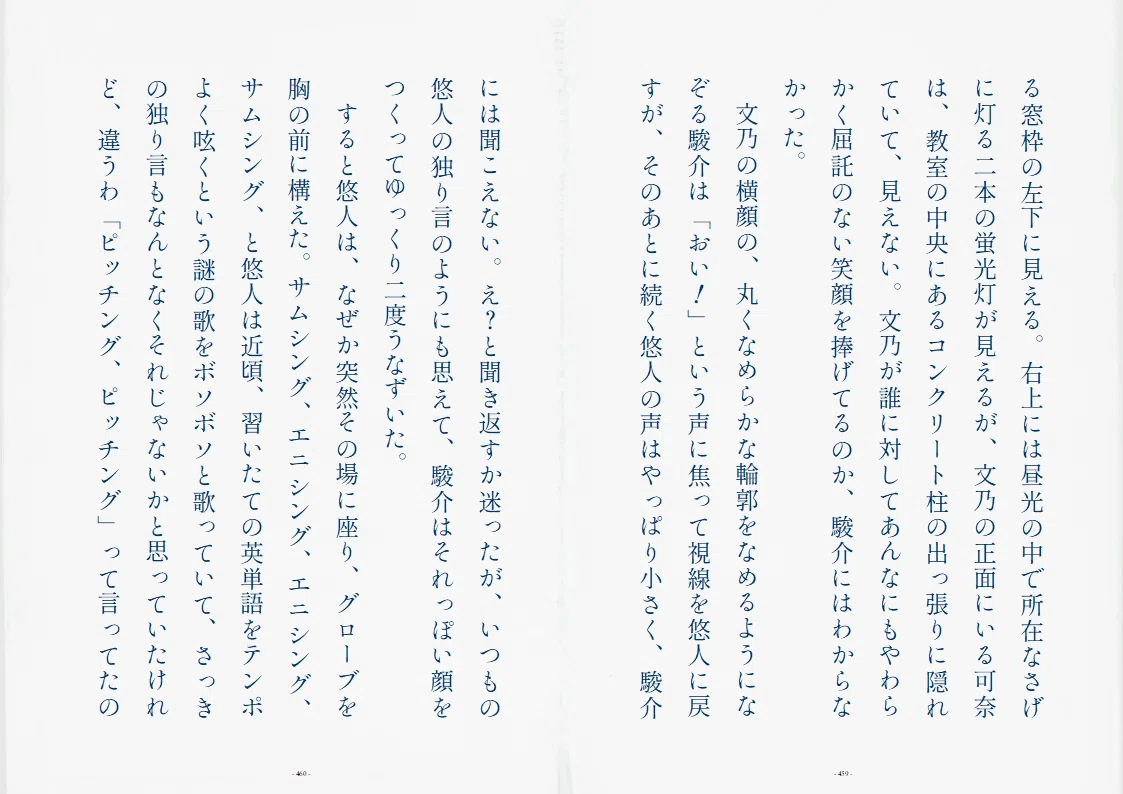 る窓枠の左下に見える。右上には昼光の中で所在なさげ
に灯る二本の蛍光灯が見えるが、文乃の正面にいる可奈
は、教室の中央にあるコンクリート柱の出っ張りに隠れ
ていて、見えない。文乃が誰に対してあんなにもやわら
かく屈託のない笑顔を捧げてるのか、駿介にはわからな
かった。
文乃の横顔の、丸くなめらかな輪郭をなめるようにな
ぞる駿介は「おい！」という声に焦って視線を悠人に戻
すが、そのあとに続く悠人の声はやっぱり小さく、駿介
- 459 -
には聞こえない。え？と聞き返すか迷ったが、いつもの
悠人の独り言のようにも思えて、駿介はそれっぽい顔を
つくってゆっくり二度うなずいた。
すると悠人は、なぜか突然その場に座り、グローブを
胸の前に構えた。サムシング、エニシング、エニシング、
サムシング、と悠人は近頃、習いたての英単語をテンポ
よく呟くという謎の歌をボソボソと歌っていて、さっき
の独り言もなんとなくそれじゃないかと思っていたけれ
ど、違うわ「ピッチング、ピッチング」って言ってたの
- 460 -